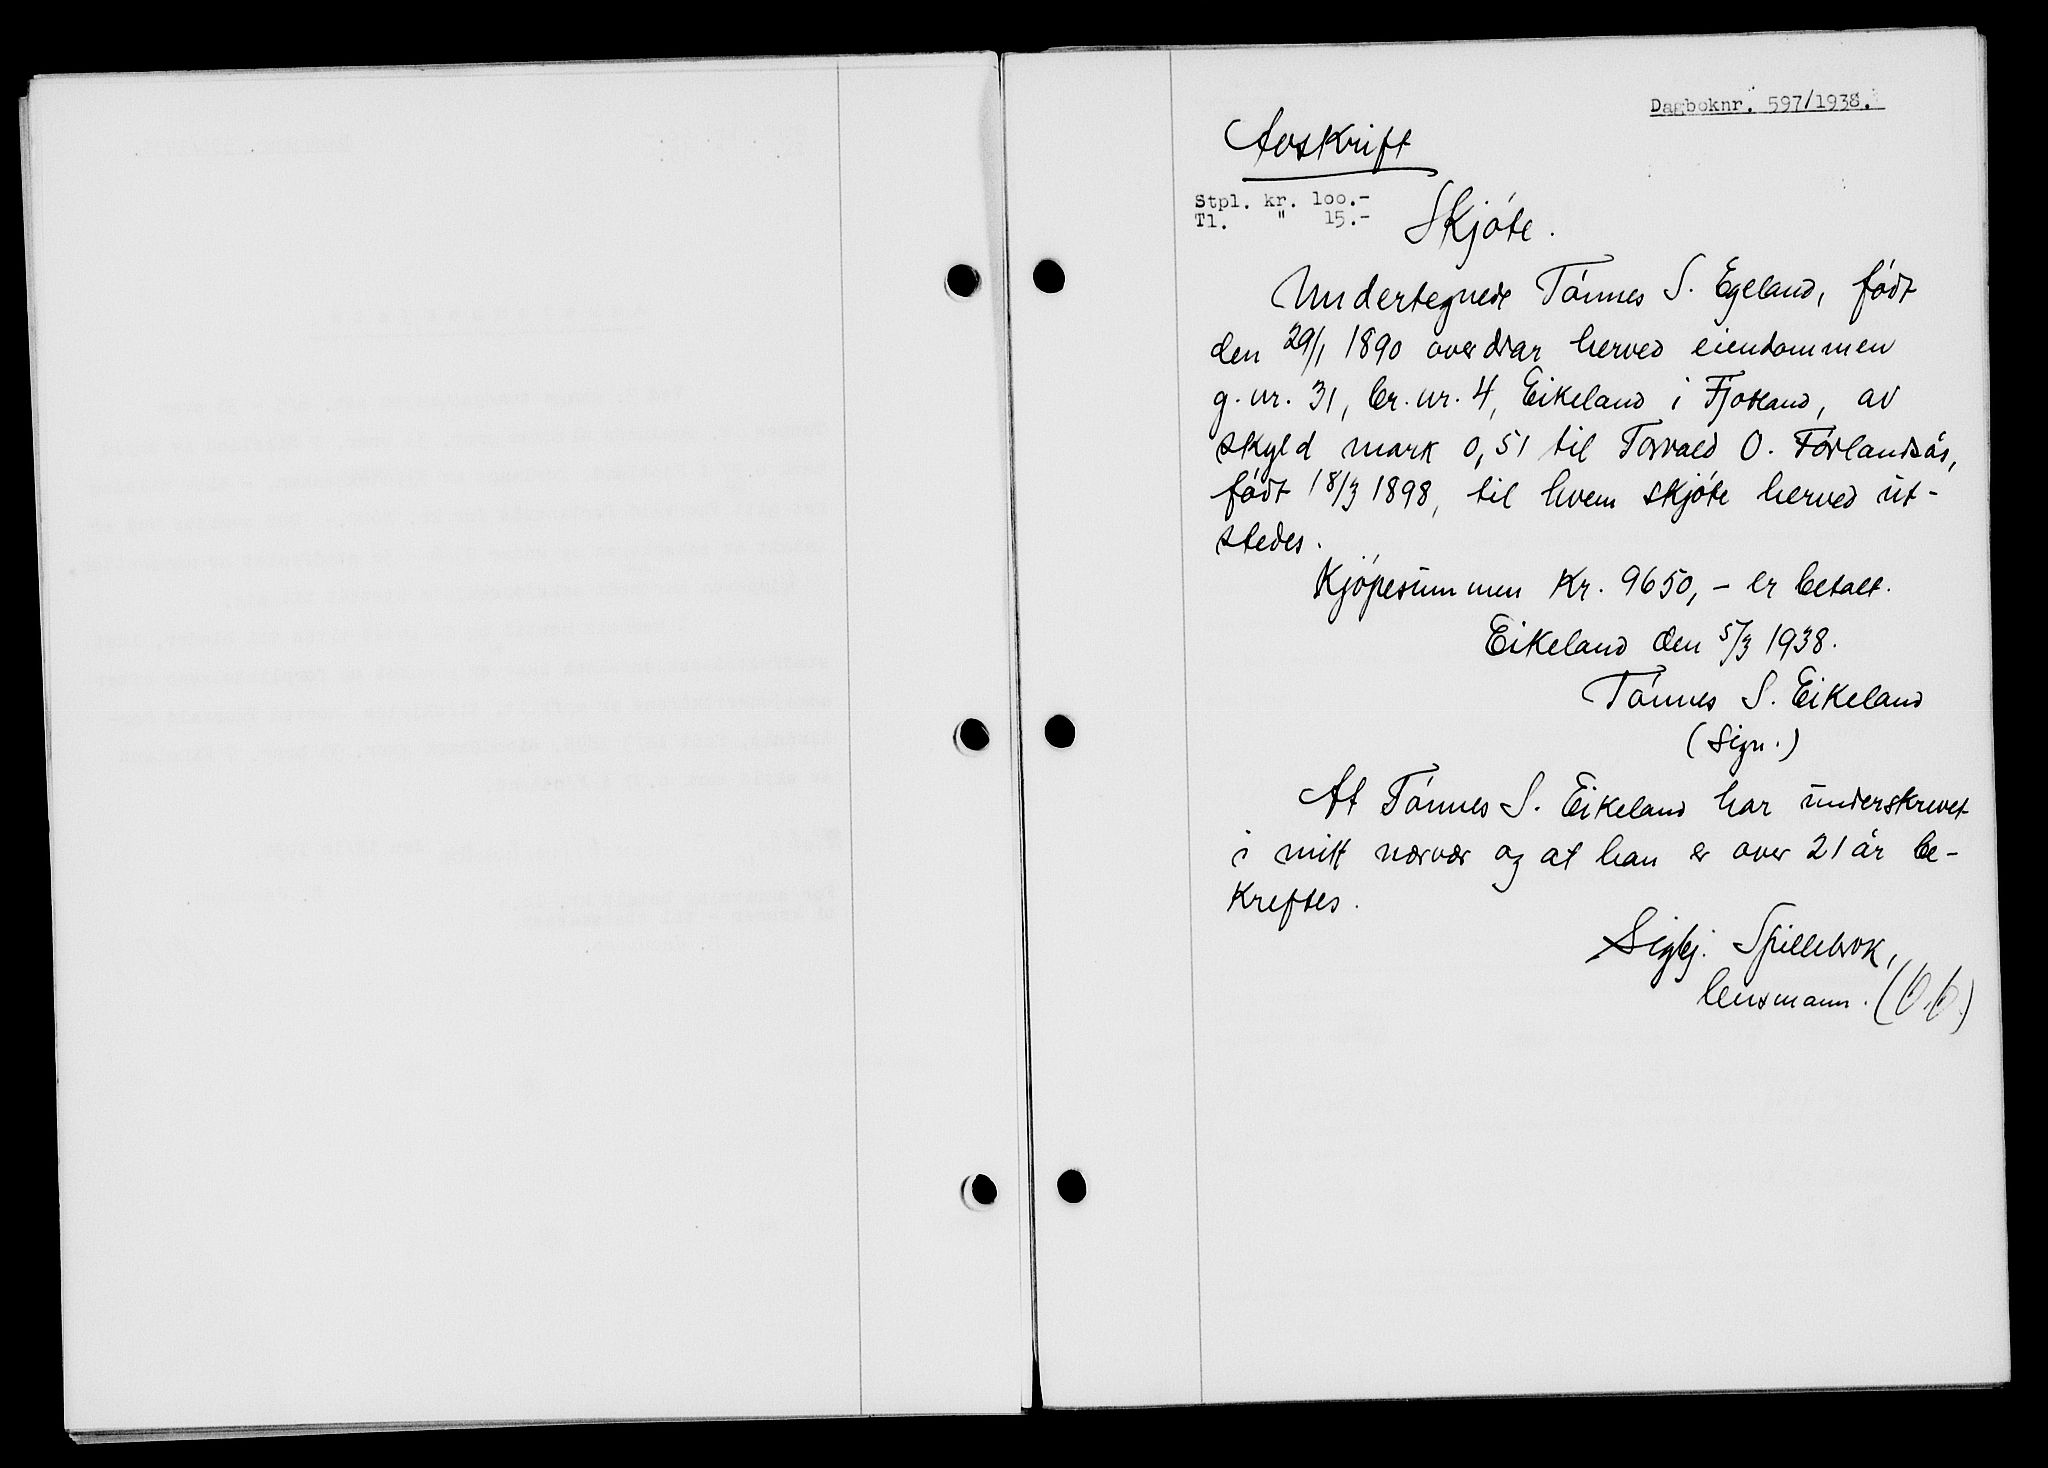 Dagboknr. 597/1938.
Avskrift
Stpl. kr. 100.-
Tl. " 15.-
Skjóte.
Undertegnede Tónnes S. Egeland, fódt
den 29/1 1890 overdrar herved eiendommen
g. nr. 31, br. nr. 4, Eikeland i Fjotland, av
skyld mark 0,51 til Torvald O. Förlandsås,
fódt 18/3 1898, til hvem skjóte herved ut-
stedes.
Kjópesummen Kr. 9650,- er betalt.
Eikeland den 5/3 1938.
Tónnes S. Eikeland
(Sign.)
At Tónnes S. Eikeland har underskrevet
i mitt nærvær og at han er over 21 år be-
kreftes.
Sigbj. Spillebrok,
lensmann.